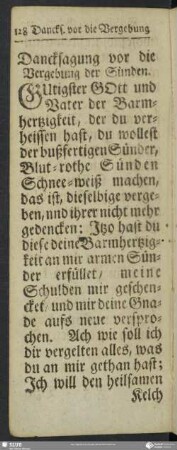 128 Dancks. vor die Vergebung
Dancksagung vor die
Vergebung der Sünden.
GUtigster GOtt und
Vater der Barm-
hertzigkeit, der du ver-
heissen hast, du wollest
der bußfertigen Sünder,
Blut-rothe Sünden
Schnee-weiß machen,
das ist, dieselbige verge-
ben, und ihrer nicht mehr
gedencken: Itzo hast du
diese deine Barmhertzig-
keit an mir armen Sün-
der erfüllet, meine
Schulden mir geschen-
cket, und mir deine Gna-
de aufs neue verspro-
chen. Ach wie soll ich
dir vergelten alles, was
du an mir gethan hast;
Jch will den heilsamen
Kelch